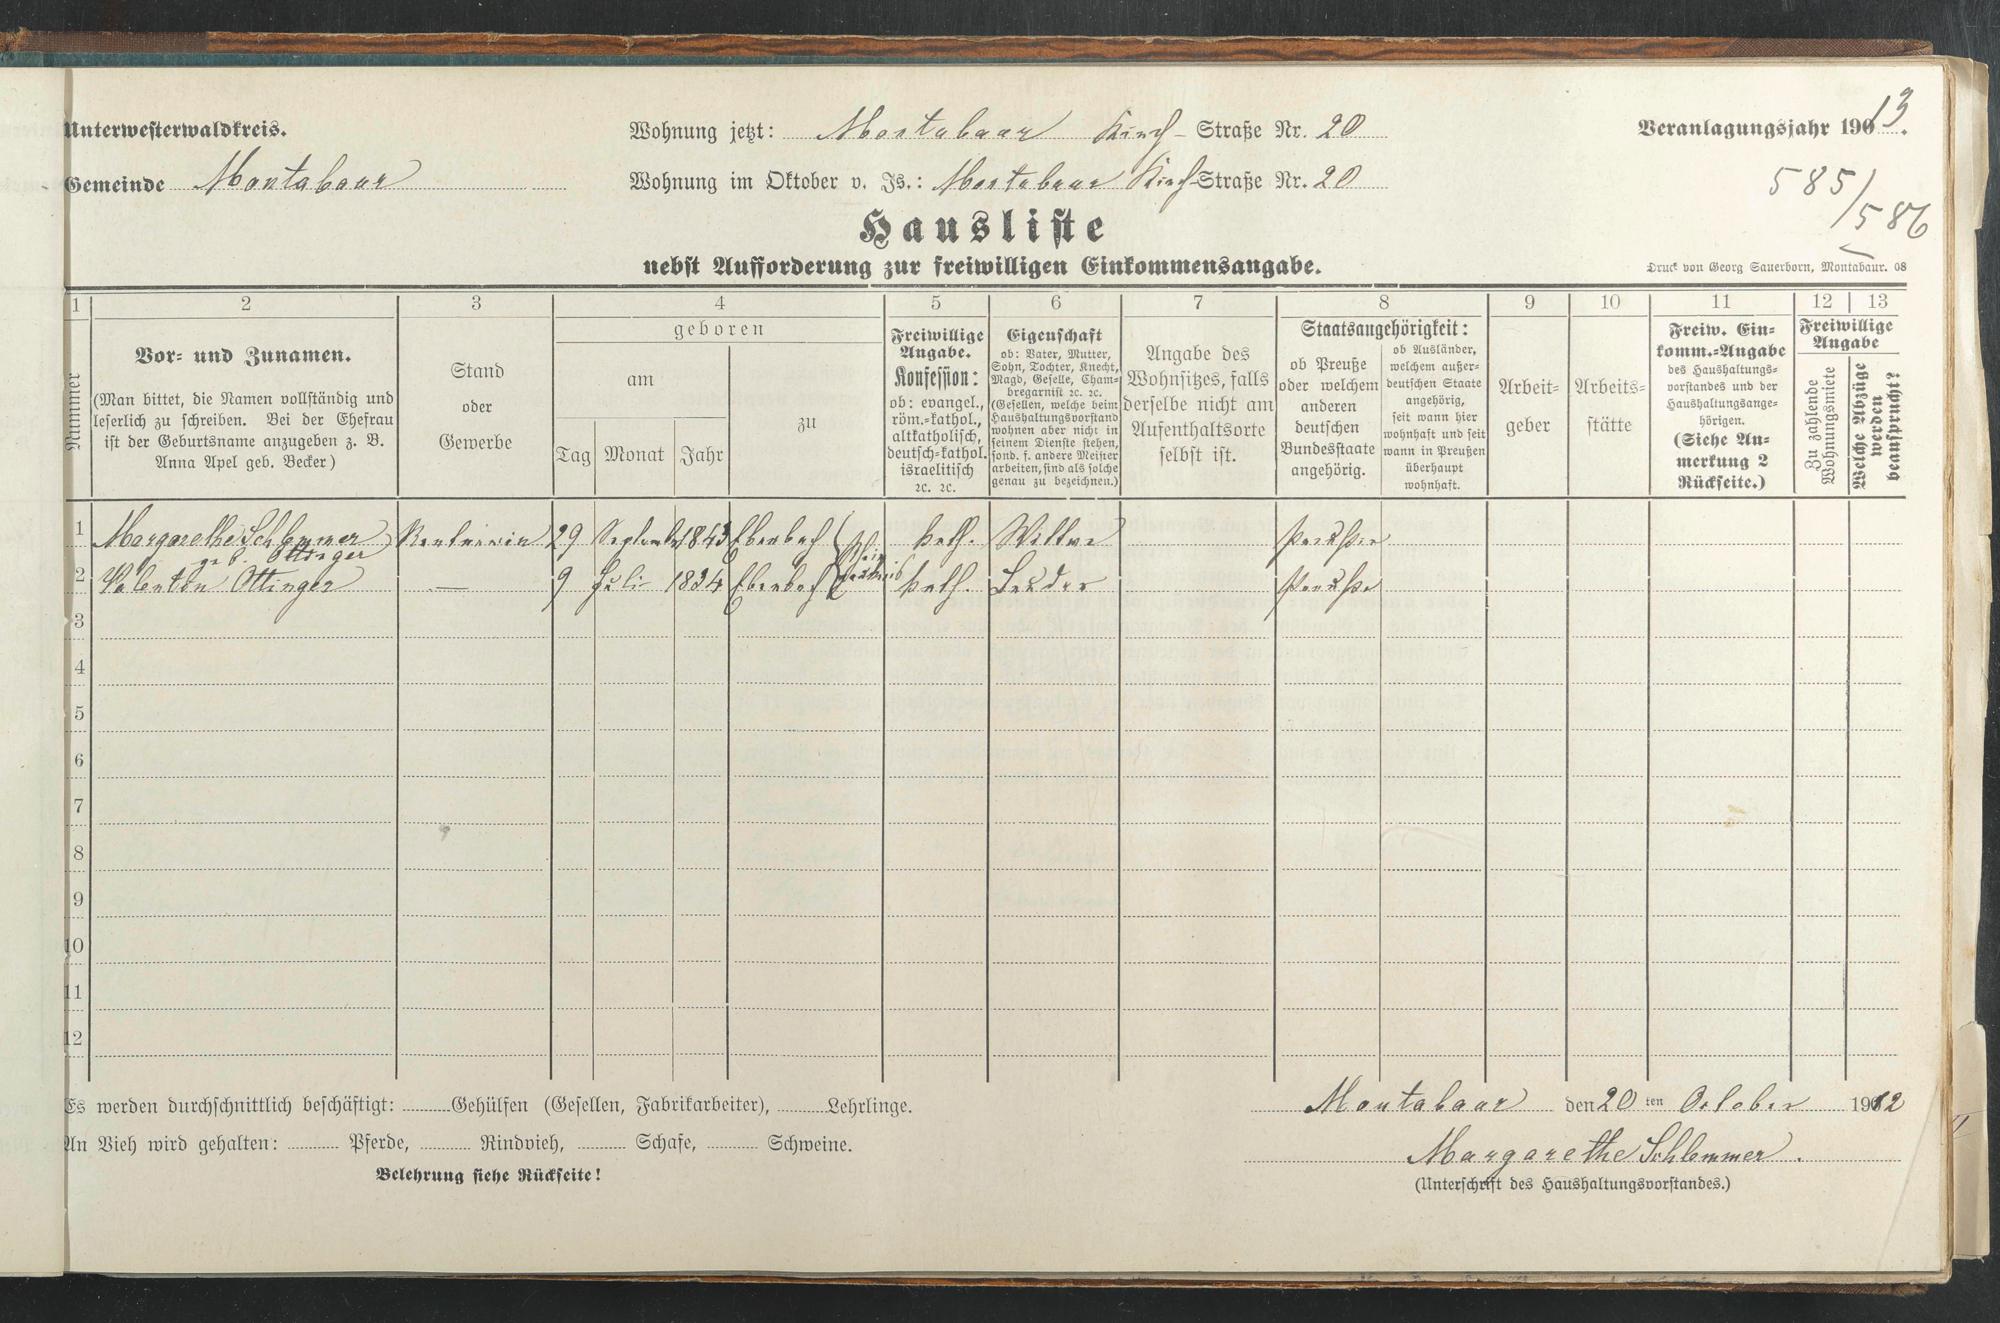 Unterwesterwaldkreis.
Gemeinde Montabaur
Wohnung jetzt: Montabaur Kirch- Straße Nr. 20
Wohnung im Oktober v. Js.: Montabaur Kirch- Straße Nr. 20
Veranlagungsjahr 1913.
585/586
Hausliste
nebst Aufforderung zur freiwilligen Einkommensangabe.
Druck von Georg Sauerborn, Montabaur. 08
1 2 3 4 5 6 7 8 9 10 11 12 13
Nummer
Vor- und Zunamen.
(Man bittet, die Namen vollständig und
leserlich zu schreiben. Bei der Ehefrau
ist der Geburtsname anzugeben z. B.
Anna Apel geb. Becker)
Stand
oder
Gewerbe
geboren
am
Tag Monat Jahr
zu
Freiwillige
Angabe.
Konfession:
ob: evangel.,
röm.-kathol.,
altkatholisch,
deutsch-kathol.
israelitisch
ꝛc. ꝛc.
Eigenschaft
ob: Vater, Mutter,
Sohn, Tochter, Knecht,
Magd, Geselle, Cham-
bregarnist ꝛc. ꝛc.
(Gesellen, welche beim
Haushaltungsvorstand
wohnen aber nicht in
seinem Dienste stehen,
sond. f. andere Meister
arbeiten, sind als solche
genau zu bezeichnen.)
Angabe des
Wohnsitzes, falls
derselbe nicht am
Aufenthaltsorte
selbst ist.
Staatsangehörigkeit:
ob Preuße
oder welchem
anderen
deutschen
Bundesstaate
angehörig.
ob Ausländer,
welchem außer-
deutschen Staate
angehörig,
seit wann hier
wohnhaft und seit
wann in Preußen
überhaupt
wohnhaft.
Arbeit-
geber
Arbeits-
stätte
Freiw. Ein-
komm.-Angabe
des Haushaltungs-
vorstandes und der
Haushaltungsange-
hörigen.
(Siehe An-
merkung 2
Rückseite.)
Freiwillige
Angabe
Zu zahlende
Wohnungsmiete
Welche Abzüge
werden
beansprucht?
1 Margarethe Schlemmer Rentnerin 29 September 1843 Eberbach kath. Wittwe Preußin
geb. Ottinger
2 Valentin Ottinger — 9 Juli 1834 Eberbach kath. Bruder Preuße
3
4
5
6
7
8
9
10
11
12
Es werden durchschnittlich beschäftigt: Gehülfen (Gesellen, Fabrikarbeiter), Lehrlinge.
An Vieh wird gehalten: Pferde, Rindvieh, Schafe, Schweine.
Belehrung siehe Rückseite!
Montabaur den 20 ten October 1912
Margarethe Schlemmer.
(Unterschrift des Haushaltungsvorstandes.)